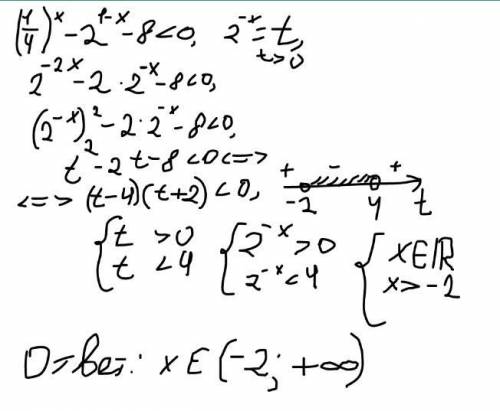 (1/4)^x - 2^(1-x) - 8 < 0, 2^(-x) = t, t > 0
2^(-2x) - 2 · 2^(-x) - 8 < 0,
(2^(-x))^2 - 2 · 2^(-x) - 8 < 0,
t^2 - 2t - 8 < 0 <=>
<=> (t-4)(t+2) < 0,
+ - +
-2 4 t
{ t > 0 { 2^(-x) > 0 { x∈ℝ
{ t < 4 { 2^(-x) < 4 { x > -2
Ответ: x ∈ (-2; +∞)